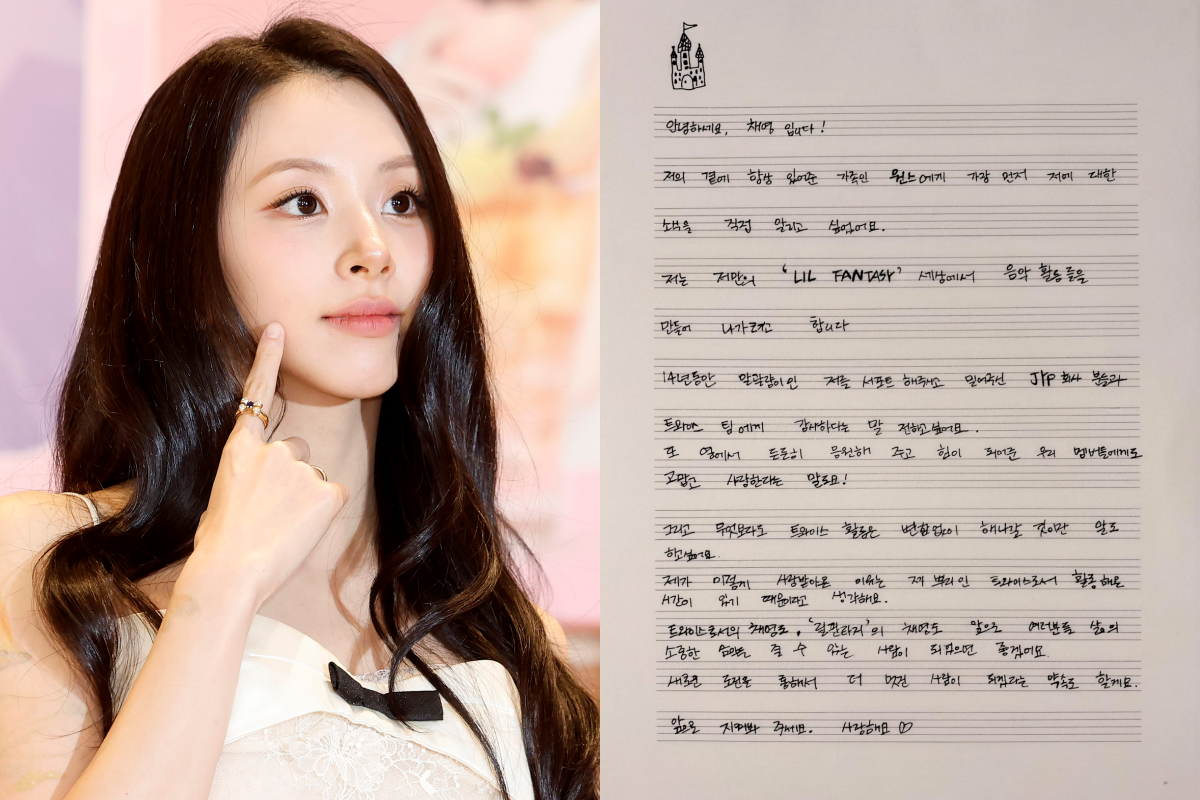 안녕하세요, 채영 입니다!
저의 곁에 항상 있어준 가족인 원스에게 가장 먼저 저에 대한
소식을 직접 알리고 싶었어요.
저는 저만의 'LIL FANTASY' 세상에서 음악 활동들을
만들어 나가려고 합니다
14년동안 말괄량이인 저를 서포트 해주시고 믿어주신 JYP 회사 분들과
트와이스 팀에게 감사하다는 말 전하고싶어요.
또 옆에서 든든히 응원해 주고 힘이 되어준 우리 멤버들에게도
고맙고 사랑한다는 말도요!
그리고 무엇보다도 트와이스 활동은 변함없이 해나갈 것이란 말도
하고싶어요.
제가 이렇게 사랑받아온 이유는 제 뿌리인 트와이스로서 활동해온
시간이 있기 때문이라고 생각해요.
트와이스로서의 채영도, '릴판타지'의 채영도 앞으로 여러분들 삶의
소중한 순간을 줄 수 있는 사람이 되었으면 좋겠어요
새로운 도전을 통해서 더 멋진 사람이 되겠다는 약속도 할게요.
앞으로 지켜봐 주세요. 사랑해요♡